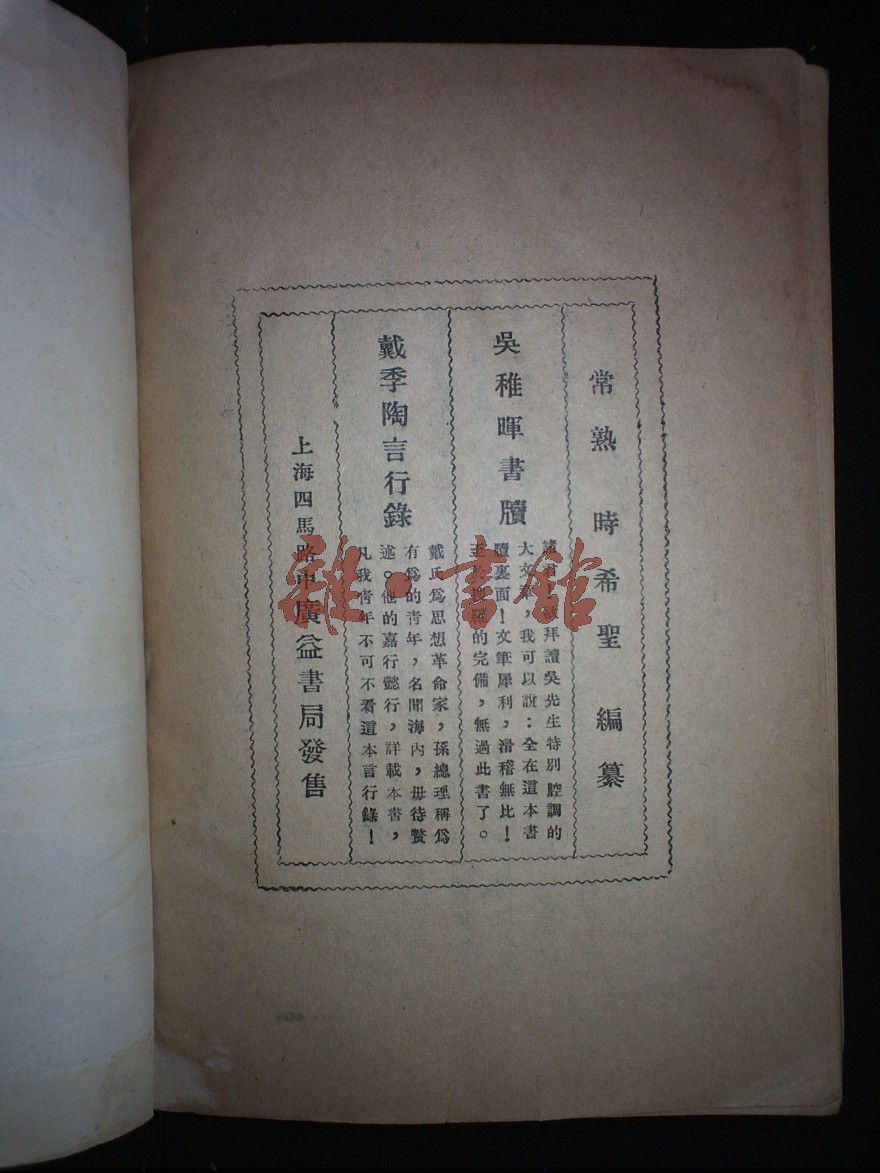 常熟時希聖編纂
吳稚暉書牘
諸君欲拜讀吳先生特別腔調的
大文章，我可以說：全在這本書
牘裏面！文筆犀利，滑稽無比！
至於搜羅的完備，無過此書了。
戴季陶言行錄
戴氏爲思想革命家，孫總理稱爲
有爲的靑年，名聞海內，毋待贅
述。他的嘉行懿行，詳載本書，
凡我靑年不可不看這本言行錄！
上海四馬路中廣益書局發售
雜·書館